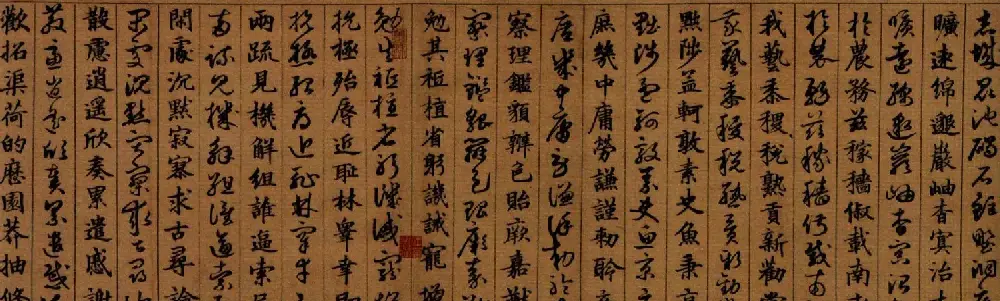 赤城昆池碣石鉅野洞庭
曠遠綿邈巖岫杳冥治本
曠遠綿邈巖岫杳冥治
於農務茲稼穡俶載南
於農務茲稼穡俶載南
我藝黍稷稅熟貢新勸賞
我藝黍稷稅熟貢新勸賞
黜陟孟軻敦素史魚秉直
黜陟孟軻敦素史魚秉直
庶幾中庸勞謙謹敕聆
庶幾中庸勞謙謹敕聆
察理鑑貌辨色貽厥嘉猷
察理鑑貌辨色貽厥嘉猷
勉其祗植省躬譏誡寵增
勉其祗植省躬譏誡寵
抗極殆辱近恥林皋幸即
抗極殆辱近恥林皋幸
兩疏見機解組誰逼索居
兩疏見機解組誰逼索居
閑處沉默寂寥求古尋論
閑處沉默寂寥求古尋
散慮逍遙欣奏累遣慼謝
散慮逍遙欣奏累遣慼
歡招渠荷的歷園莽抽條